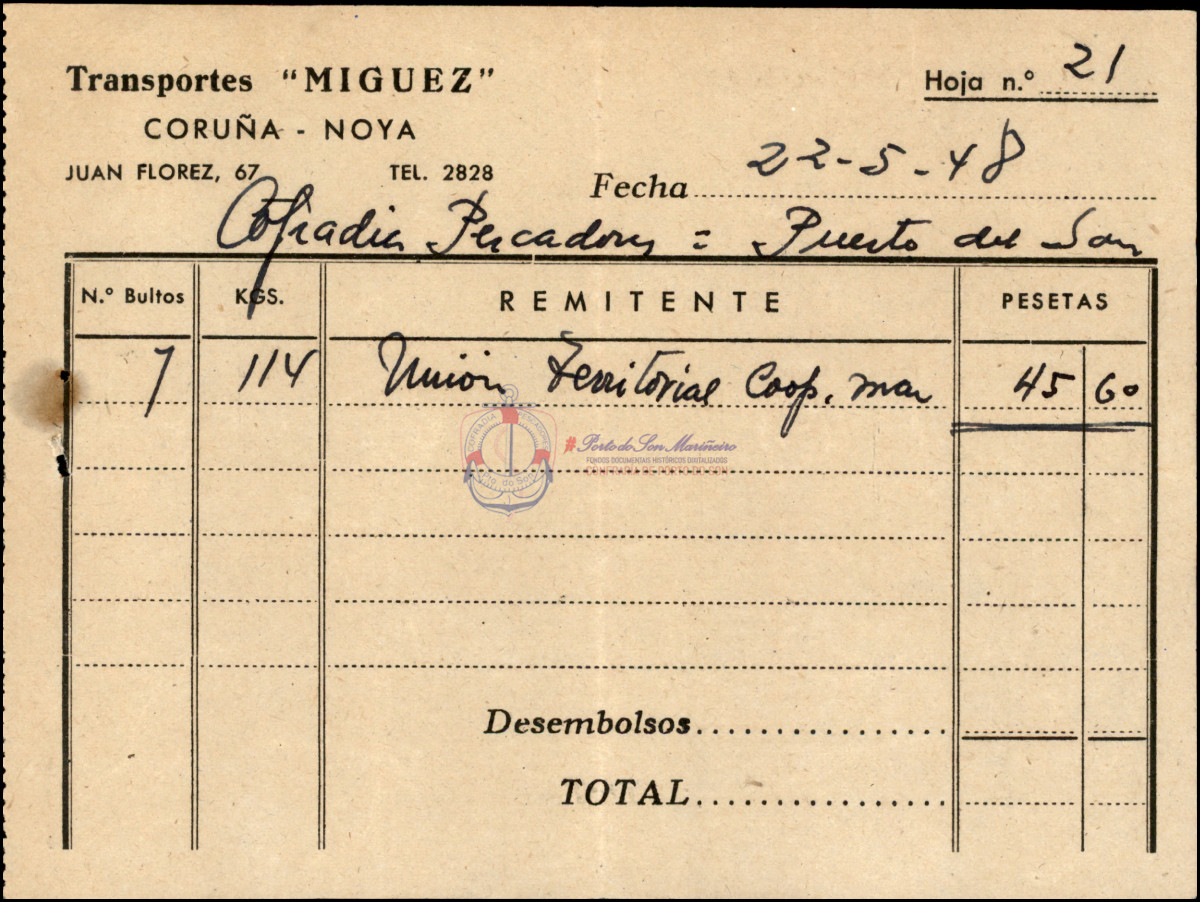 Transportes "MIGUEZ"
CORUÑA - NOYA
JUAN FLOREZ, 67 TEL. 2828
Hoja n.º 21
Fecha 22-5-48
Cofradia Pescadores = Puerto del Son
N.º Bultos KGS. REMITENTE PESETAS
7 114 Unión Territorial Coop. mar 45 60
COFRADIA PESCADORES
Pto. do Son
#Porto do Son Mariñeiro
FONDOS DOCUMENTAIS HISTÓRICOS DIXITALIZADOS
CONFRARÍA DE PORTO DO SON
Desembolsos
TOTAL